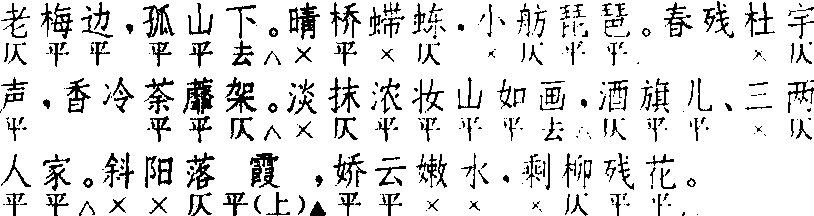 老梅边，孤山下。晴桥螮蝀，小舫琵琶。春残杜宇
仄平平 平平去△×平×仄 ×仄平平 ×仄
声，香冷荼蘼架。淡抹浓妆山如画，酒旗儿、三两
平 平平仄△×仄平平平去△仄平平 ×仄
人家。斜阳落霞，娇云嫩水，剩柳残花。
平平△××仄平(上)▲平平××× 仄平平